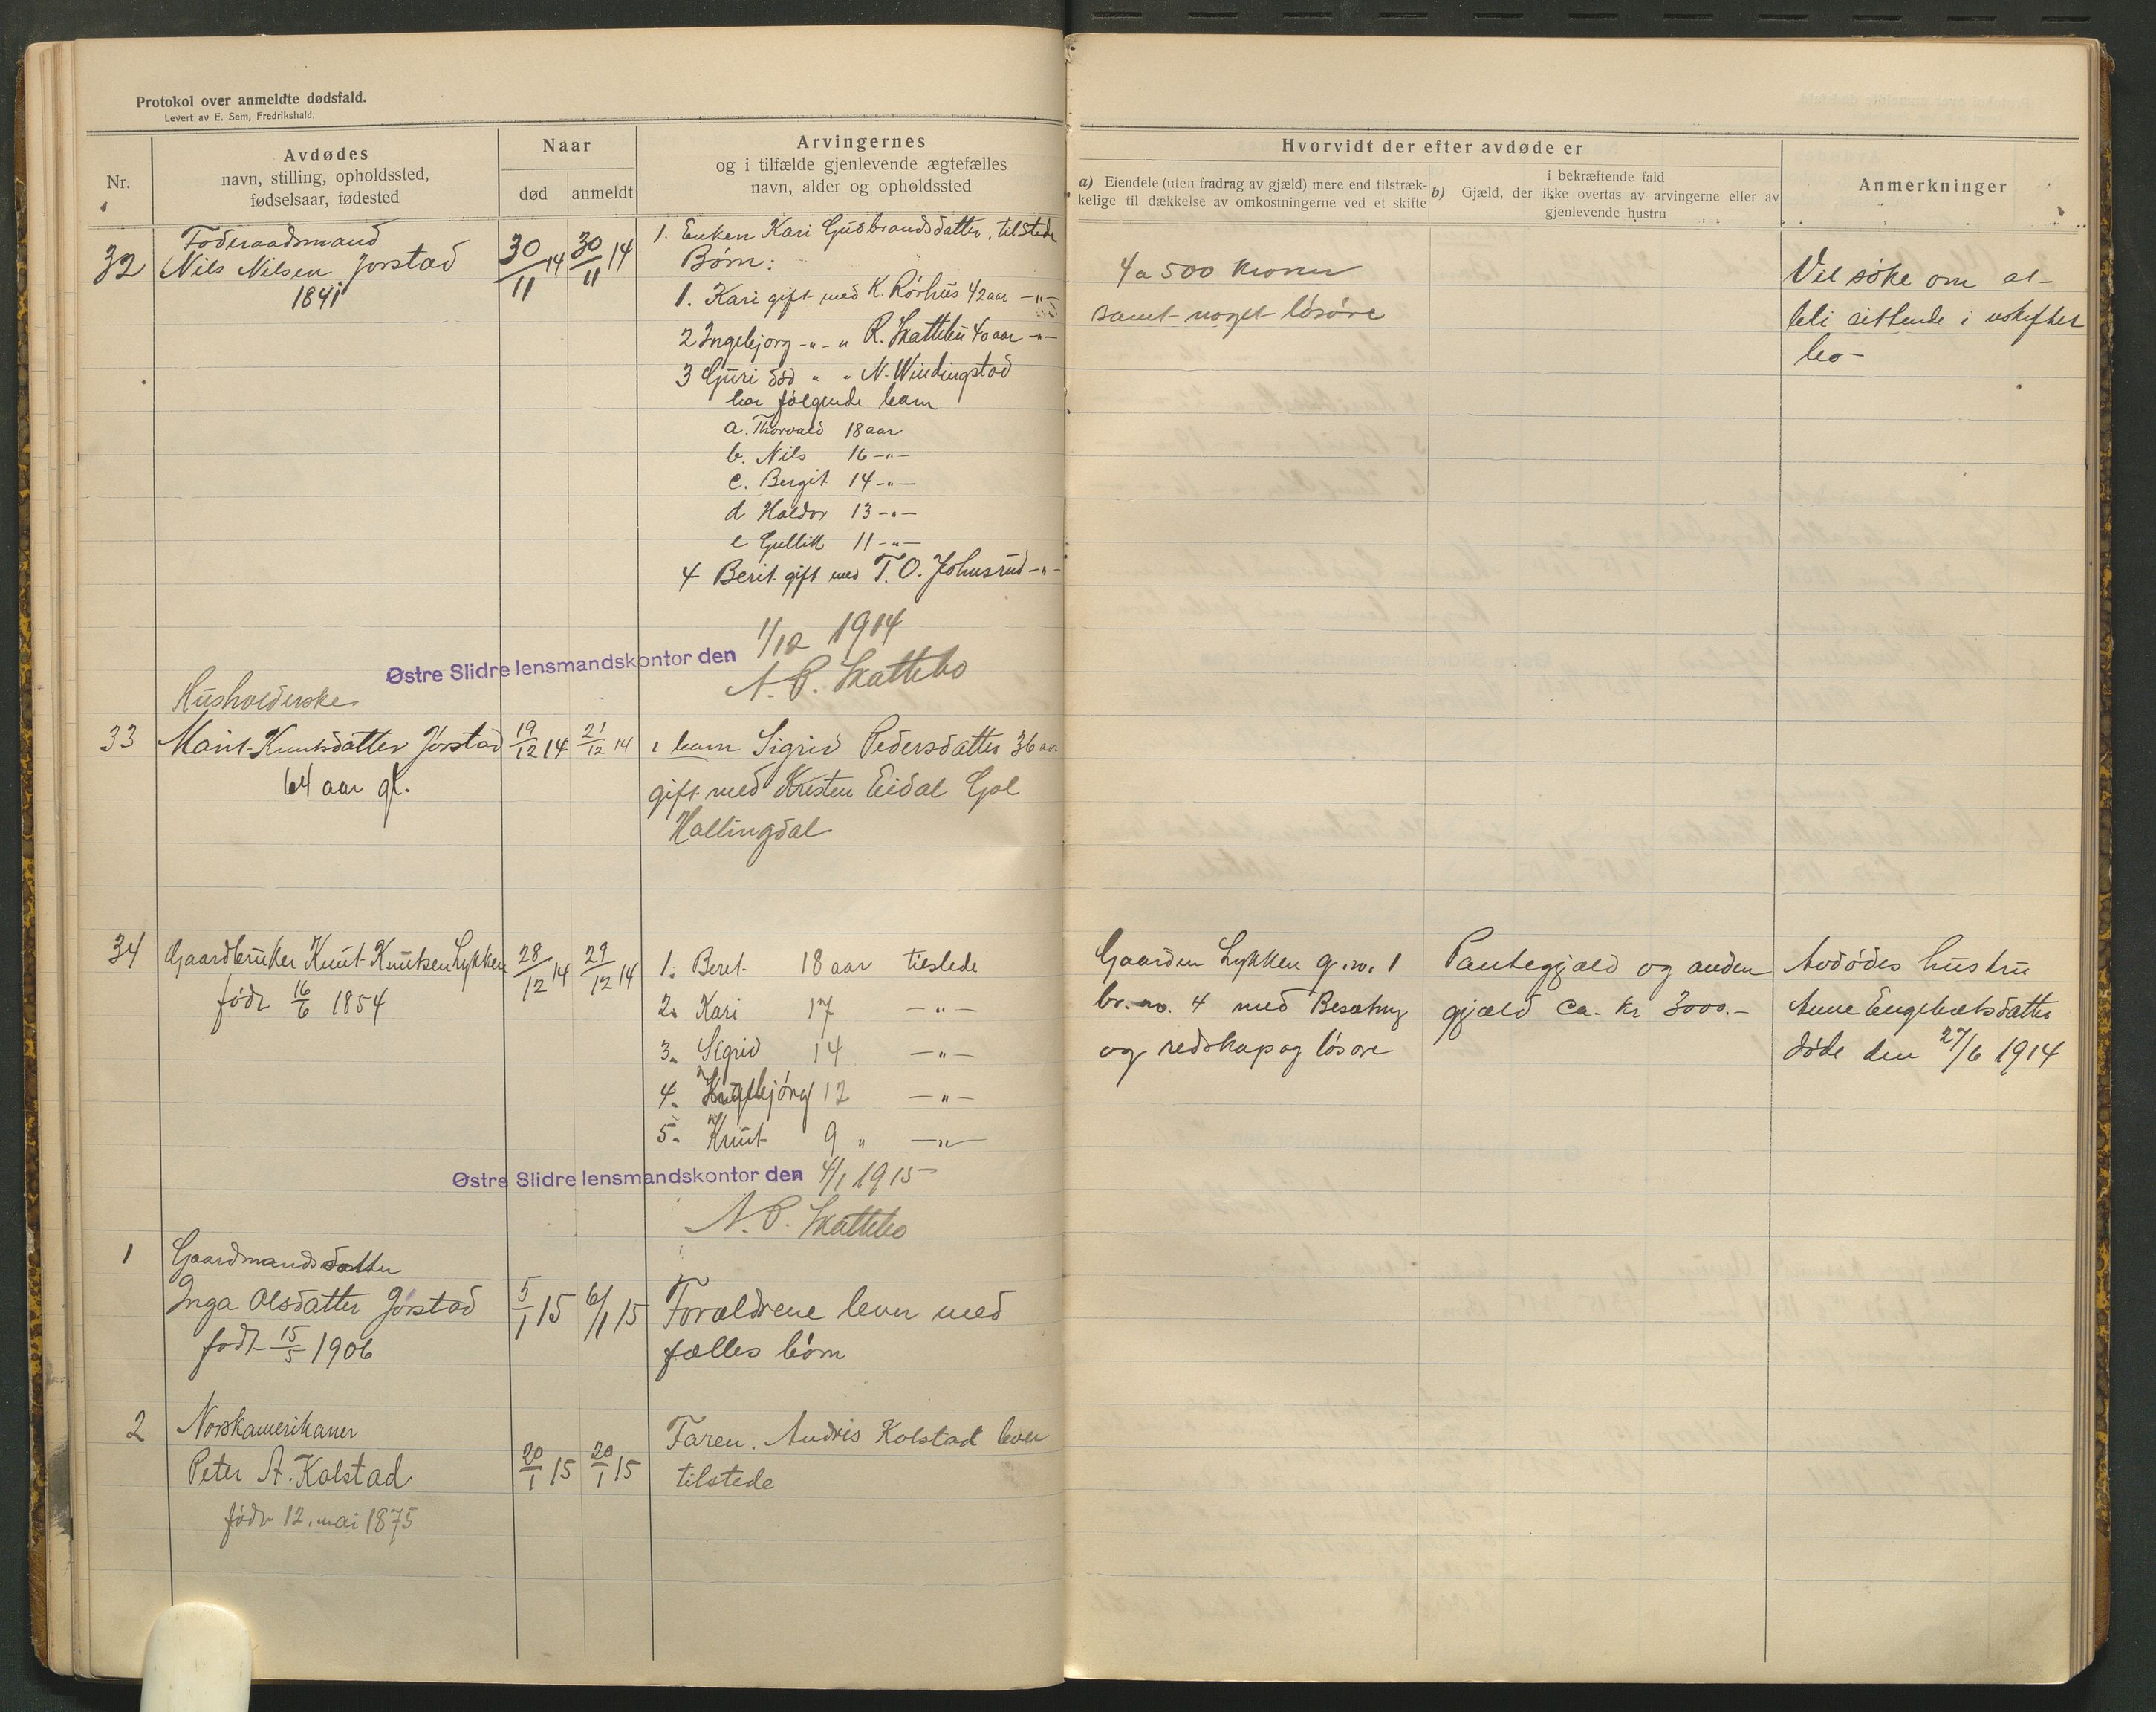 Protokol over anmeldte dødsfald.
Levert av E. Sem, Fredrikshald.
Nr.
Avdødes
navn, stilling, opholdssted,
fødselsaar, fødested
Naar
død
anmeldt
Arvingernes
og i tilfælde gjenlevende ægtefælles
navn, alder og opholdssted
Hvorvidt der efter avdøde er
a) Eiendele (uten fradrag av gjæld) mere end tilstræk-
kelige til dækkelse av omkostningerne ved et skifte
i bekræftende fald
b) Gjæld, der ikke overtas av arvingerne eller av
gjenlevende hustru
Anmerkninger
32
Foderaadsmand
Nils Nilsen Jorstad
1841
30/11 14
30/11 14
1. Enken Kari Gudbrandsdatter, tilstede
Børn:
1. Kari gift med K. Rörhus 42 aar —"—
2 Ingebjorg -"- " R. Skattebu 40 aar —"—
3 Guri död " " N. Windingstad
har følgende barn
a. Thorvald 18 aar
b. Nils 16 —"—
c. Bergit 14 —"—
d Haldor 13 —"—
e Gullik 11 —"—
4 Berit gift med T. O. Johnsrud —"—
4 a 500 kroner
samt noget lösöre
Vil söke om at
bli sittende i uskiftet
bo —
Østre Slidre lensmandskontor den 1/12 1914
A. P. Skattebo
33
Husholderske
Marit Knutsdatter Jørstad
64 aar gl.
19/12 14
21/12 14
1 barn Sigrid Pedersdatter 36 aar
gift med Kristen Eidal Gol
Hallingdal
34
Gaardbruker Knut Knutsen Lykken
født 16/6 1854
28/12 14
29/12 14
1. Beret 18 aar tilstede
2. Kari 17 —"—
3. Sigrid 14 —"—
4. Ingebjörg 12 —"—
5. Knut 9 " —"—
Gaarden Lykken g. no. 1
br. no. 4 med Besætning
og redskap og løsøre
Pantegjæld og anden
gjæld ca. kr 3000.—
Avdødes hustru
Anne Engebretsdatter
døde den 27/6 1914
Østre Slidre lensmandskontor den 4/1 1915
A. P. Skattebo
1
Gaardmandsdatter
Inga Olsdatter Jørstad
født 15/5 1906
5/1 15
6/1 15
Forældrene lever med
fælles börn
2
Norskamerikaner
Peter A. Kolstad
født 12. mai 1875
20/1 15
20/1 15
Faren. Andris Kolstad lever
tilstede